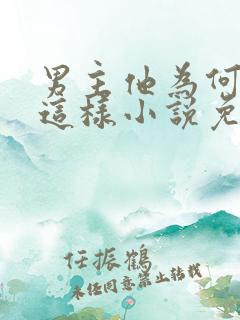 男主他為何
這樣小說免
任振鶴
未经同意禁止转载